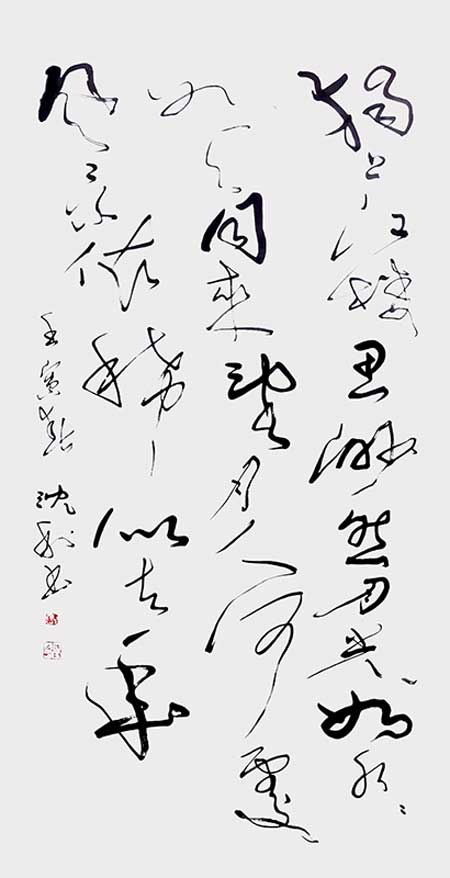 獨上江樓思渺然月光如水〻
如天同來望月人何處
風景依稀似去年
壬寅 沈 书